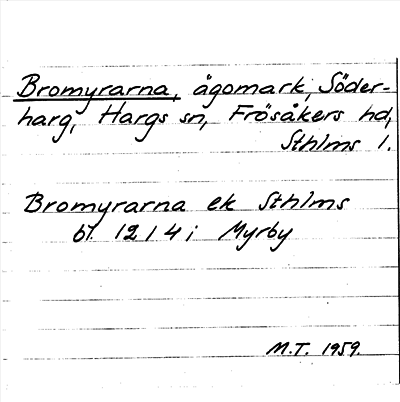 Bromyrarna, ägomark, Söder-
harg, Hargs sn, Frösåkers hd,
Sthlms l.
Bromyrarna ek Sthlms
bl. 12 I 4 i Myrby
M.T. 1959.